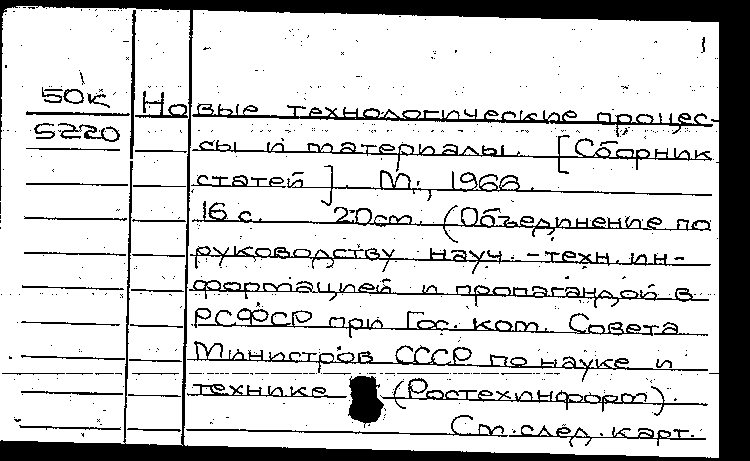 1
50к Новые технологические процес-
5220 сы и материалы. [Сборник
статей]. М., 1966.
16 с. 20 см. (Объединение по
руководству науч.-техн. ин-
формацией и пропагандой в
РСФСР при Гос. ком. Совета
Министров СССР по науке и
технике (Ростехинформ).
См. след. карт.